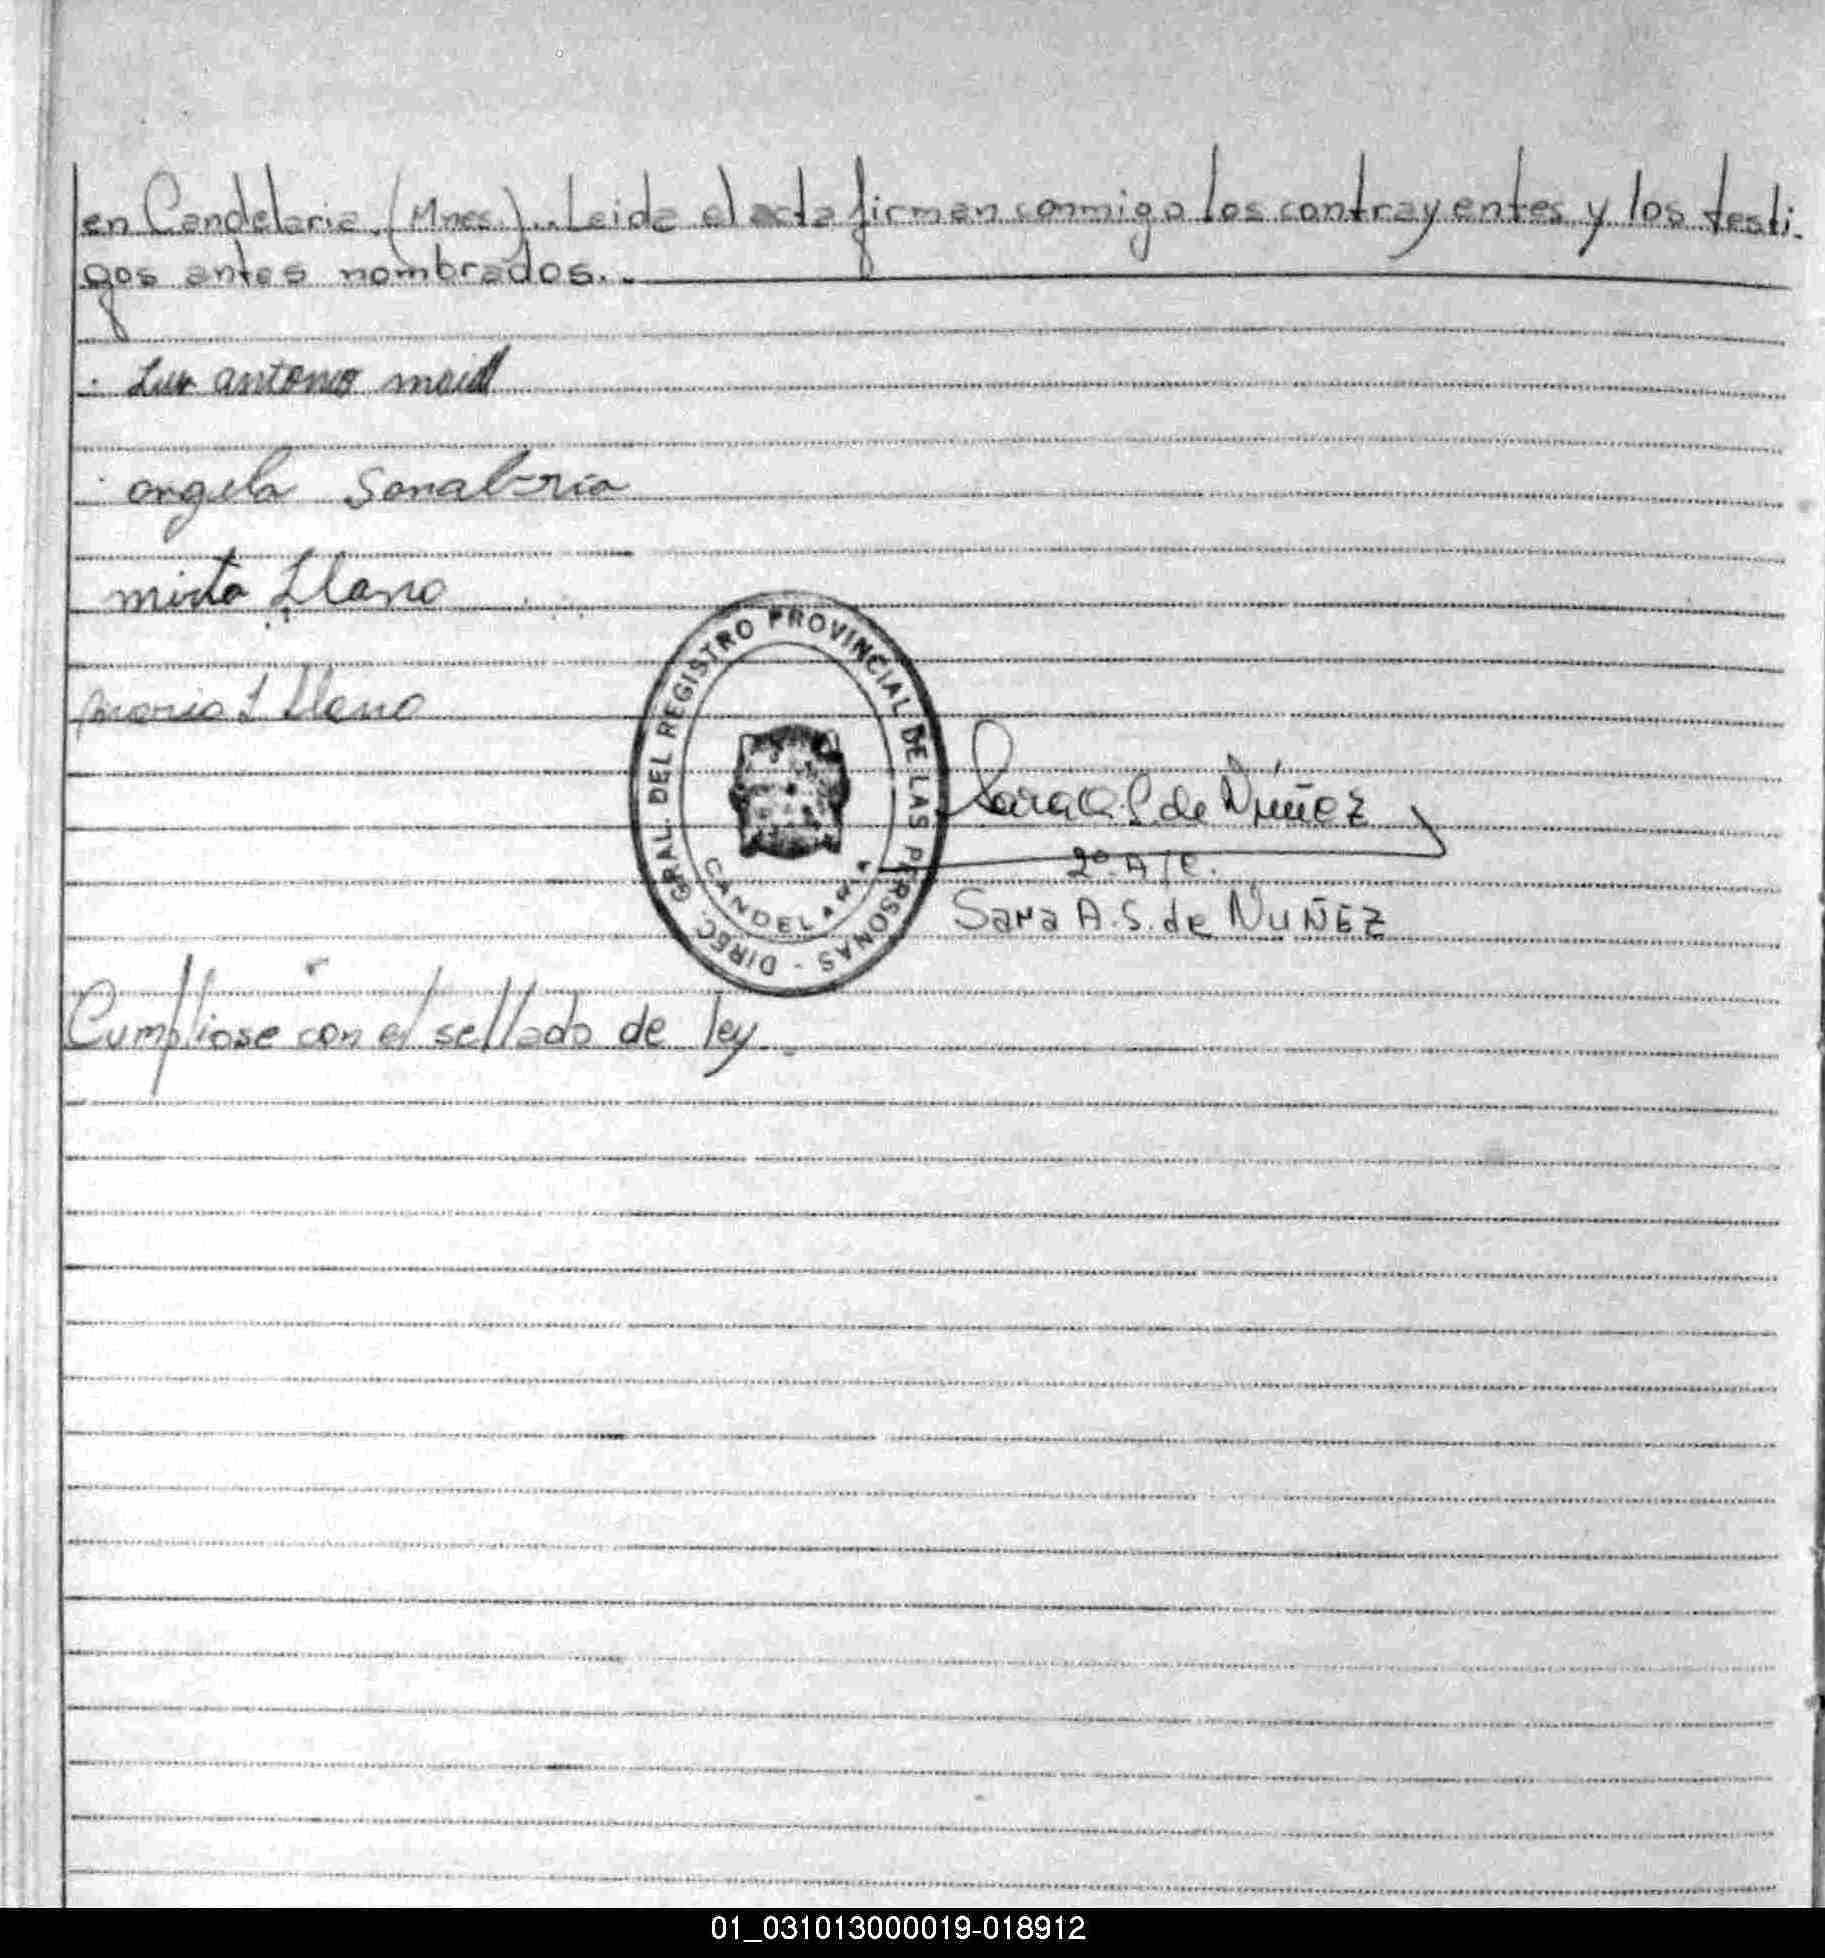 en Candelaria. (Mnes.)... Leida el acta firman conmigo los contrayentes y los testi-
gos antes nombrados..
Luis antonio
angela Sanabria
mirta Llano
maria I Llano
DIREC. GRAL. DEL REGISTRO PROVINCIAL DE LAS PERSONAS -
CANDELARIA
Sara A. S. de Núñez
2º. A/C.
Sara A. S. de NUÑEZ
Cumpliose con el sellado de ley.
01_031013000019-018912